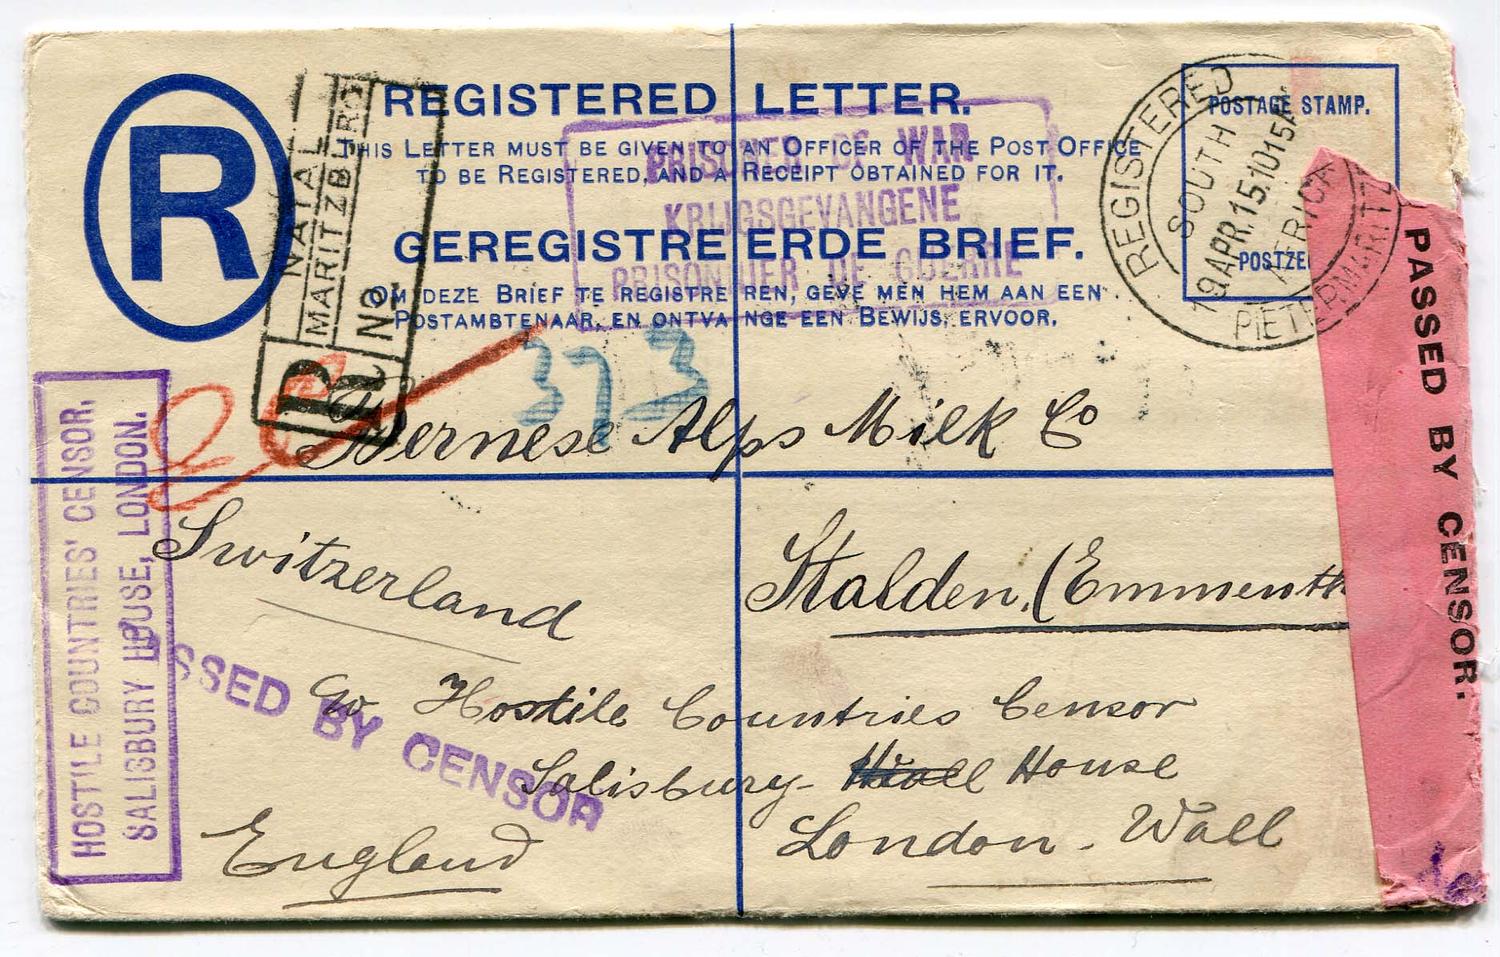 R
REGISTERED LETTER.
THIS LETTER MUST BE GIVEN TO AN OFFICER OF THE POST OFFICE
TO BE REGISTERED, AND A RECEIPT OBTAINED FOR IT.
GEREGISTREERDE BRIEF.
OM DEZE BRIEF TE REGISTREREN, GEVE MEN HEM AAN EEN
POSTAMBTENAAR, EN ONTVANGE EEN BEWIJS, ERVOOR.
PRISONER OF WAR
KRIJGSGEVANGENE
PRISONNIER DE GUERRE
NATAL
MARITZBURG
R No
POSTAGE STAMP.
POSTZE
REGISTERED
SOUTH AFRICA
19 APR.15.10 15 AM
PIETERMARITZ
PASSED BY CENSOR.
373
Bernese Alps Milk Co
Stalden, (Emmenth
Switzerland
HOSTILE COUNTRIES' CENSOR,
SALISBURY HOUSE, LONDON.
PASSED BY CENSOR
c/o Hostile Countries Censor
Salisbury House
London - Wall
England